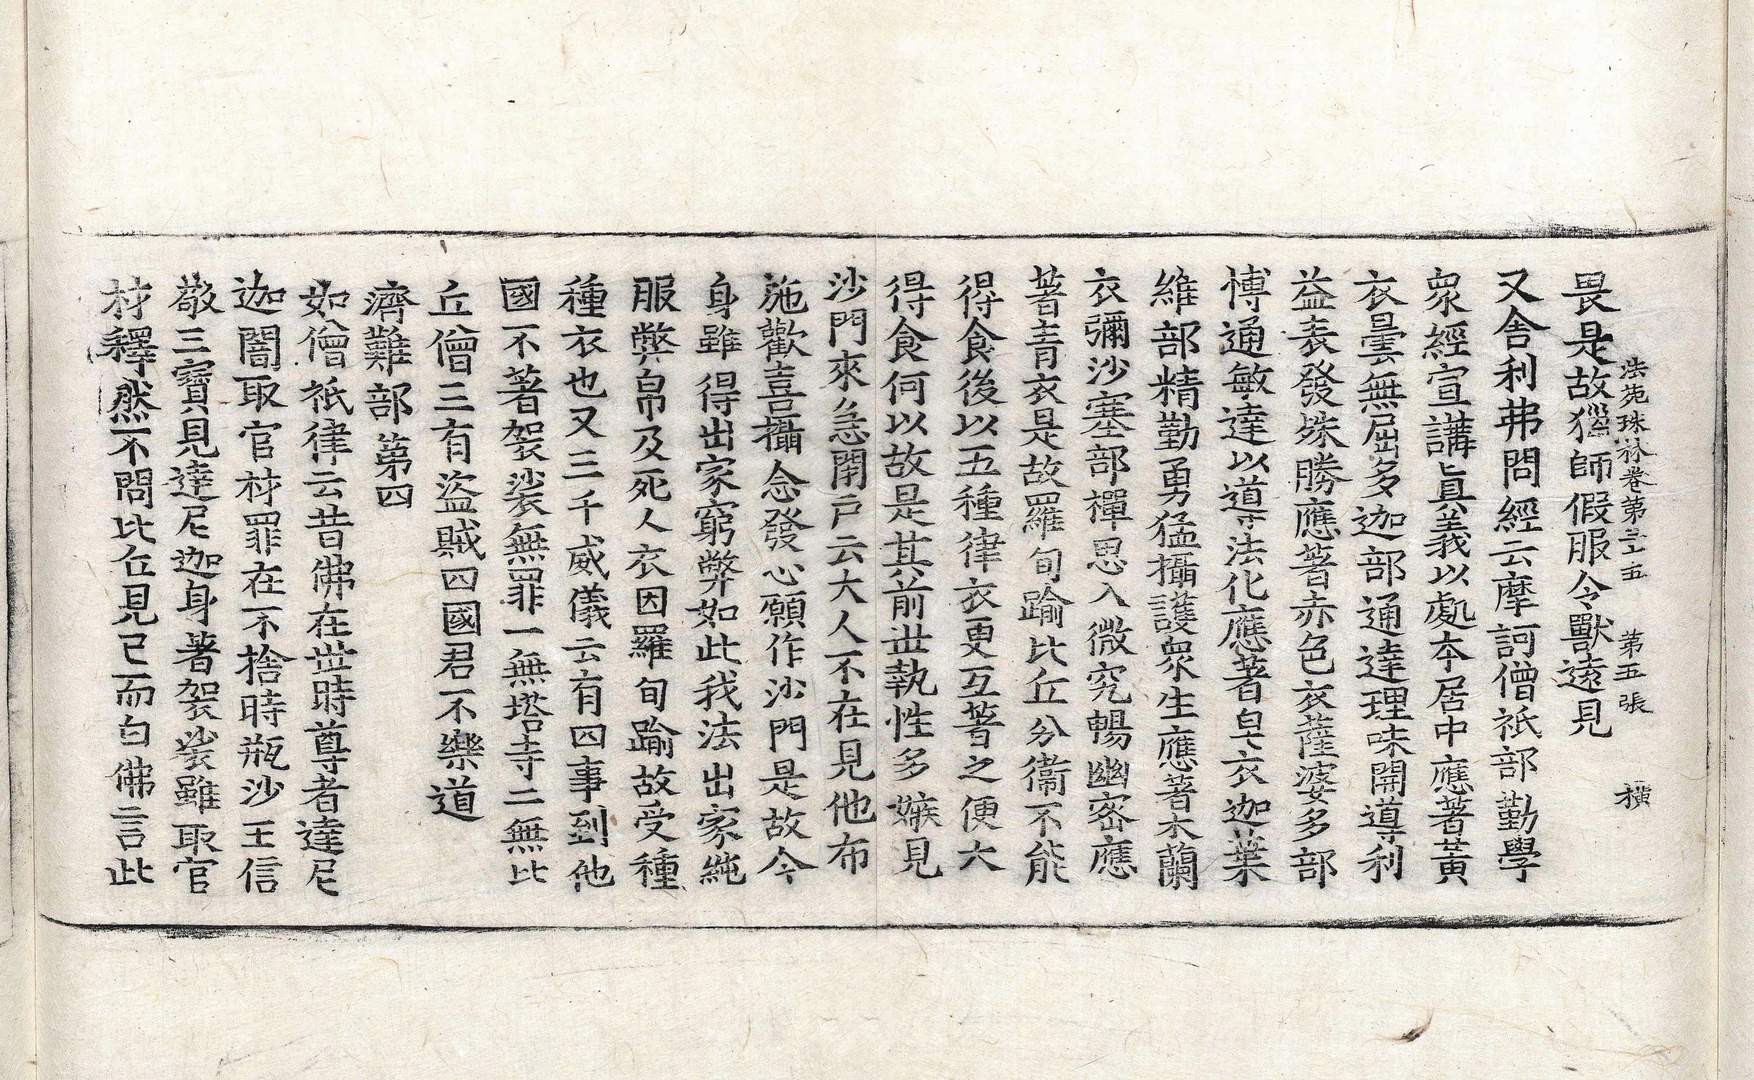 法苑珠林卷第三十五 第五張 橫
畏是故獵師假服令獸遠見
又舍利弗問經云摩訶僧祇部勤學
衆經宣講眞義以處本居中應著黃
衣曇無屈多迦部通達理味開導利
益表發殊勝應著赤色衣薩婆多部
博通敏達以道導法化應著皂衣迦葉
維部精勤勇猛攝護衆生應著木蘭
衣彌沙塞部禪思入微究暢幽密應
著青衣是故羅旬踰比丘分衞不能
得食後以五種律衣更互著之便大
得食何以故是其前世執性多嫉見
沙門來急閉戶云大人不在見他布
施歡喜攝念發心願作沙門是故今
身雖得出家窮弊如此我法出家純
服弊帛及死人衣因羅旬踰故受種
種衣也又三千威儀云有四事到他
國不著袈裟無罪一無塔寺二無比
丘僧三有盜賊四國君不樂道
濟難部第四
如僧祇律云昔佛在世時尊者達尼
迦闍取官材罪在不捨時瓶沙王信
敬三寶見達尼迦身著袈裟雖取官
材釋然不問比丘見已而白佛言此